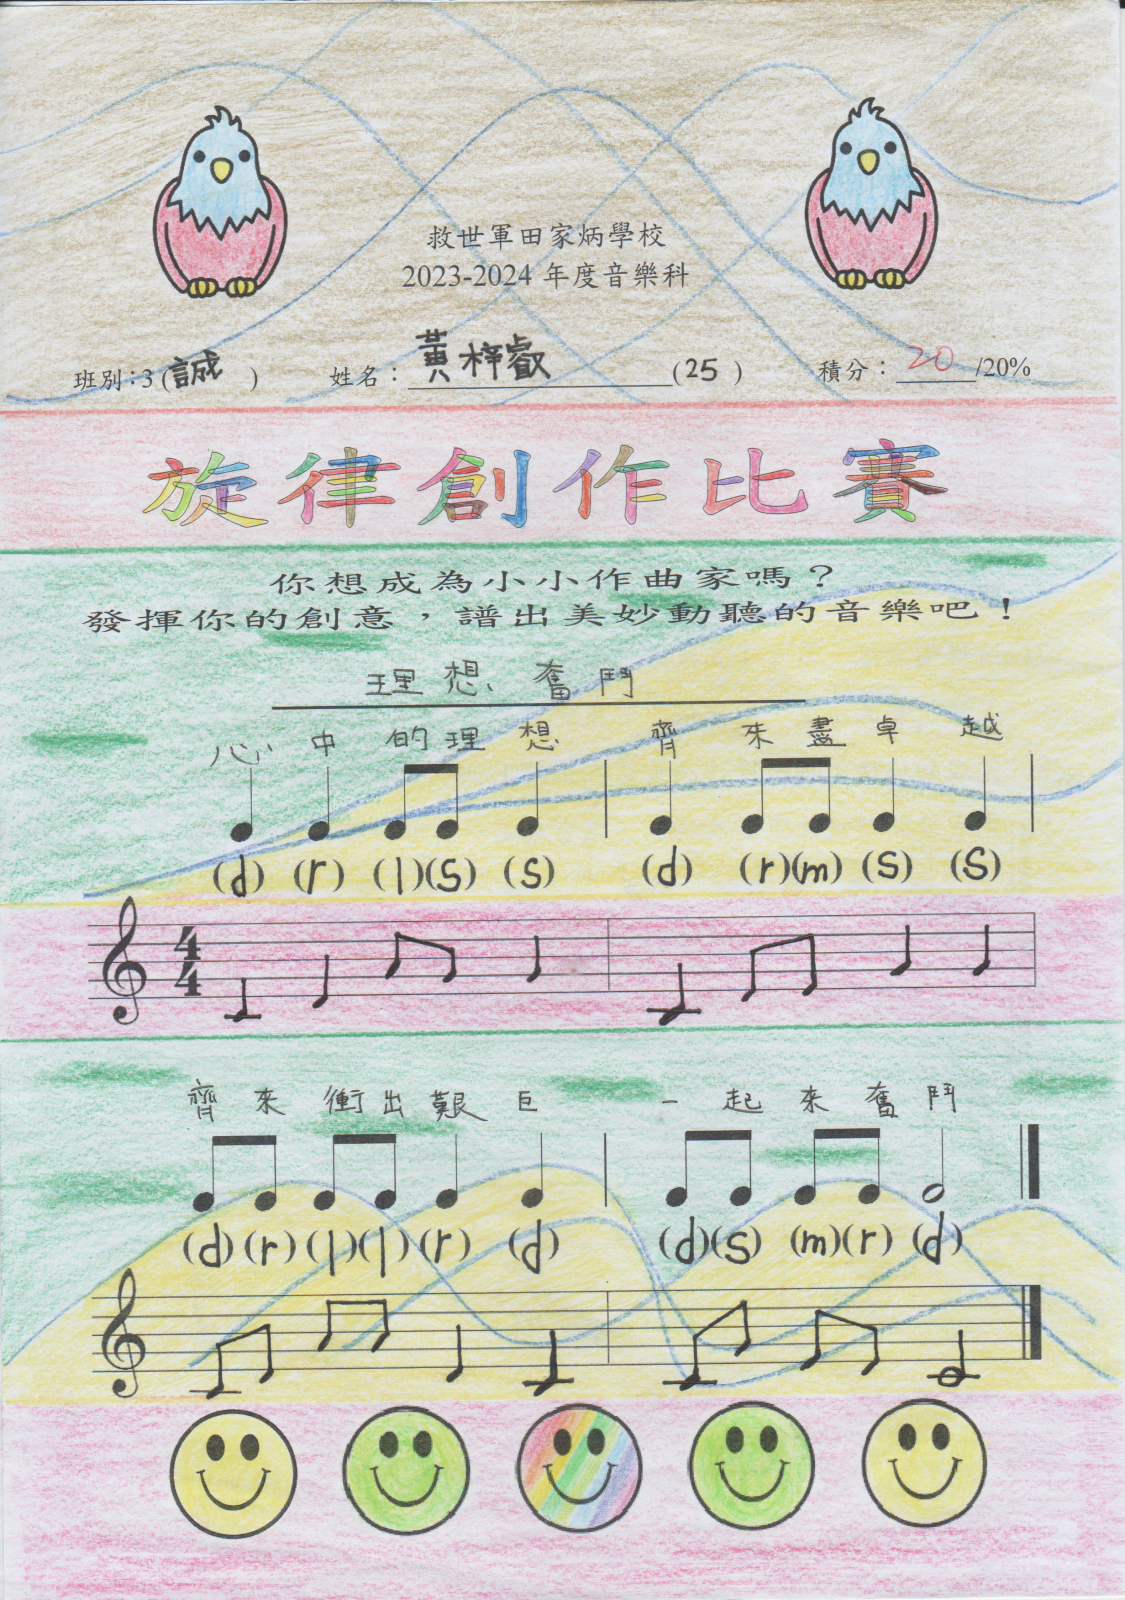 救世軍田家炳學校
2023-2024 年度音樂科
班別：3 (誠) 姓名：黃梓叡 (25) 積分：20/20%
旋律創作比賽
你想成為小小作曲家嗎？
發揮你的創意，譜出美妙動聽的音樂吧！
理想奮鬥
心中的理想 齊來盡卓越
(d) (r) (l)(s) (s) (d) (r)(m) (s) (s)
4
4
齊來衝出艱巨 一起來奮鬥
(d)(r)(l)(l)(r) (d) (d)(s) (m)(r) (d)